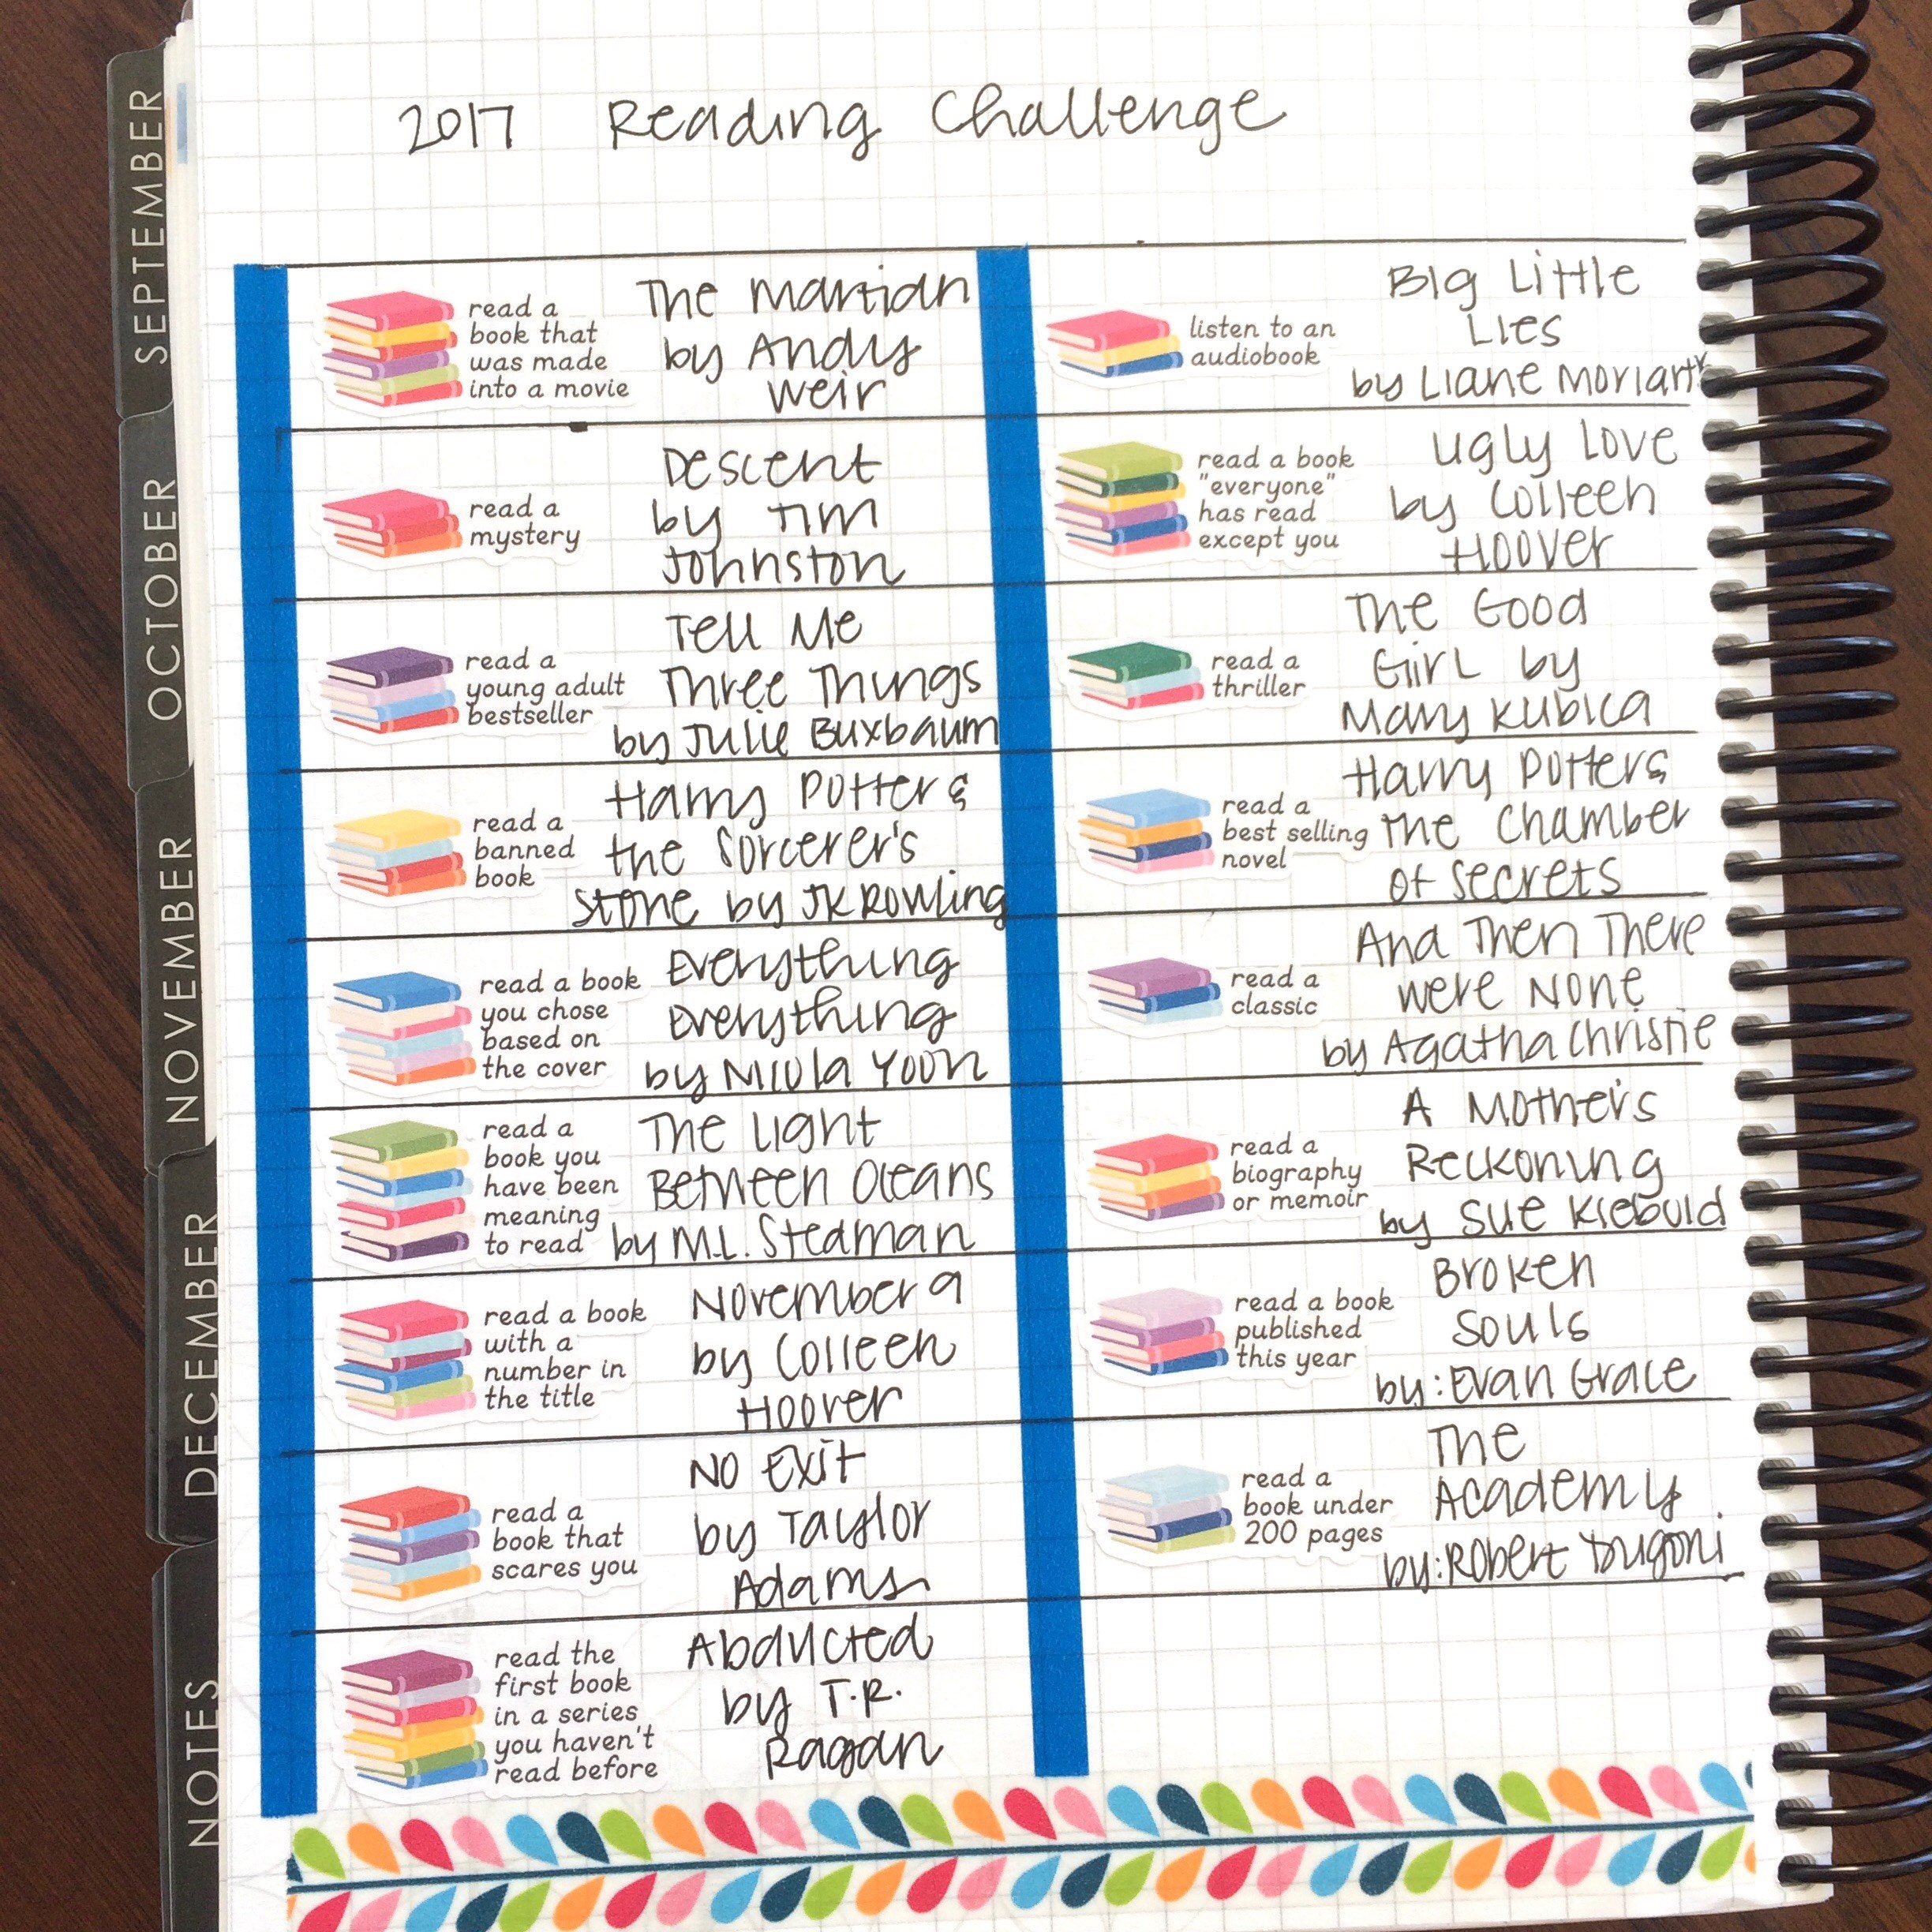 2017 Reading Challenge
read a
book that
was made
into a movie
The Martian
by Andy
Weir
read a
mystery
Descent
by Tim
Johnston
read a
young adult
bestseller
Tell Me
Three Things
by Julie Buxbaum
read a
banned
book
Harry Potter &
the Sorcerer's
Stone by JK Rowling
read a book
you chose
based on
the cover
Everything
Everything
by Nicola Yoon
read a
book you
have been
meaning
to read
The Light
Between Oceans
by M.L. Stedman
read a book
with a
number in
the title
November 9
by Colleen
Hoover
read a
book that
scares you
No Exit
by Taylor
Adams
read the
first book
in a series
you haven't
read before
Abducted
by T.R.
Ragan
listen to an
audiobook
Big Little
Lies
by Liane Moriarty
read a book
"everyone"
has read
except you
Ugly Love
by Colleen
Hoover
read a
thriller
The Good
Girl by
Mary Kubica
read a
best selling
novel
Harry Potter &
the Chamber
of Secrets
read a
classic
And Then There
Were None
by Agatha Christie
read a
biography
or memoir
A Mother's
Reckoning
by Sue Klebold
read a book
published
this year
Broken
Souls
by: Evan Grace
read a
book under
200 pages
The
Academy
by: Robert Dugoni
SEPTEMBER
OCTOBER
NOVEMBER
DECEMBER
NOTES